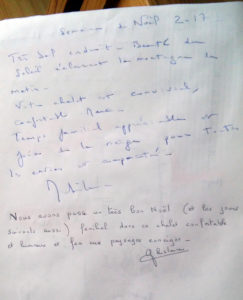 Semaine de Noël 2017
Très bel endroit - Beauté du
Soleil éclairant la montagne le
matin -
Votre chalet est convivial,
confortable
Temps familial appréciable et
joies de la neige pour toutes
les envies et
Nous avons passé un très bon Noël (et les jours
suivants aussi) familial dans ce chalet confortable
et lumineux et face aux paysages enneigés -